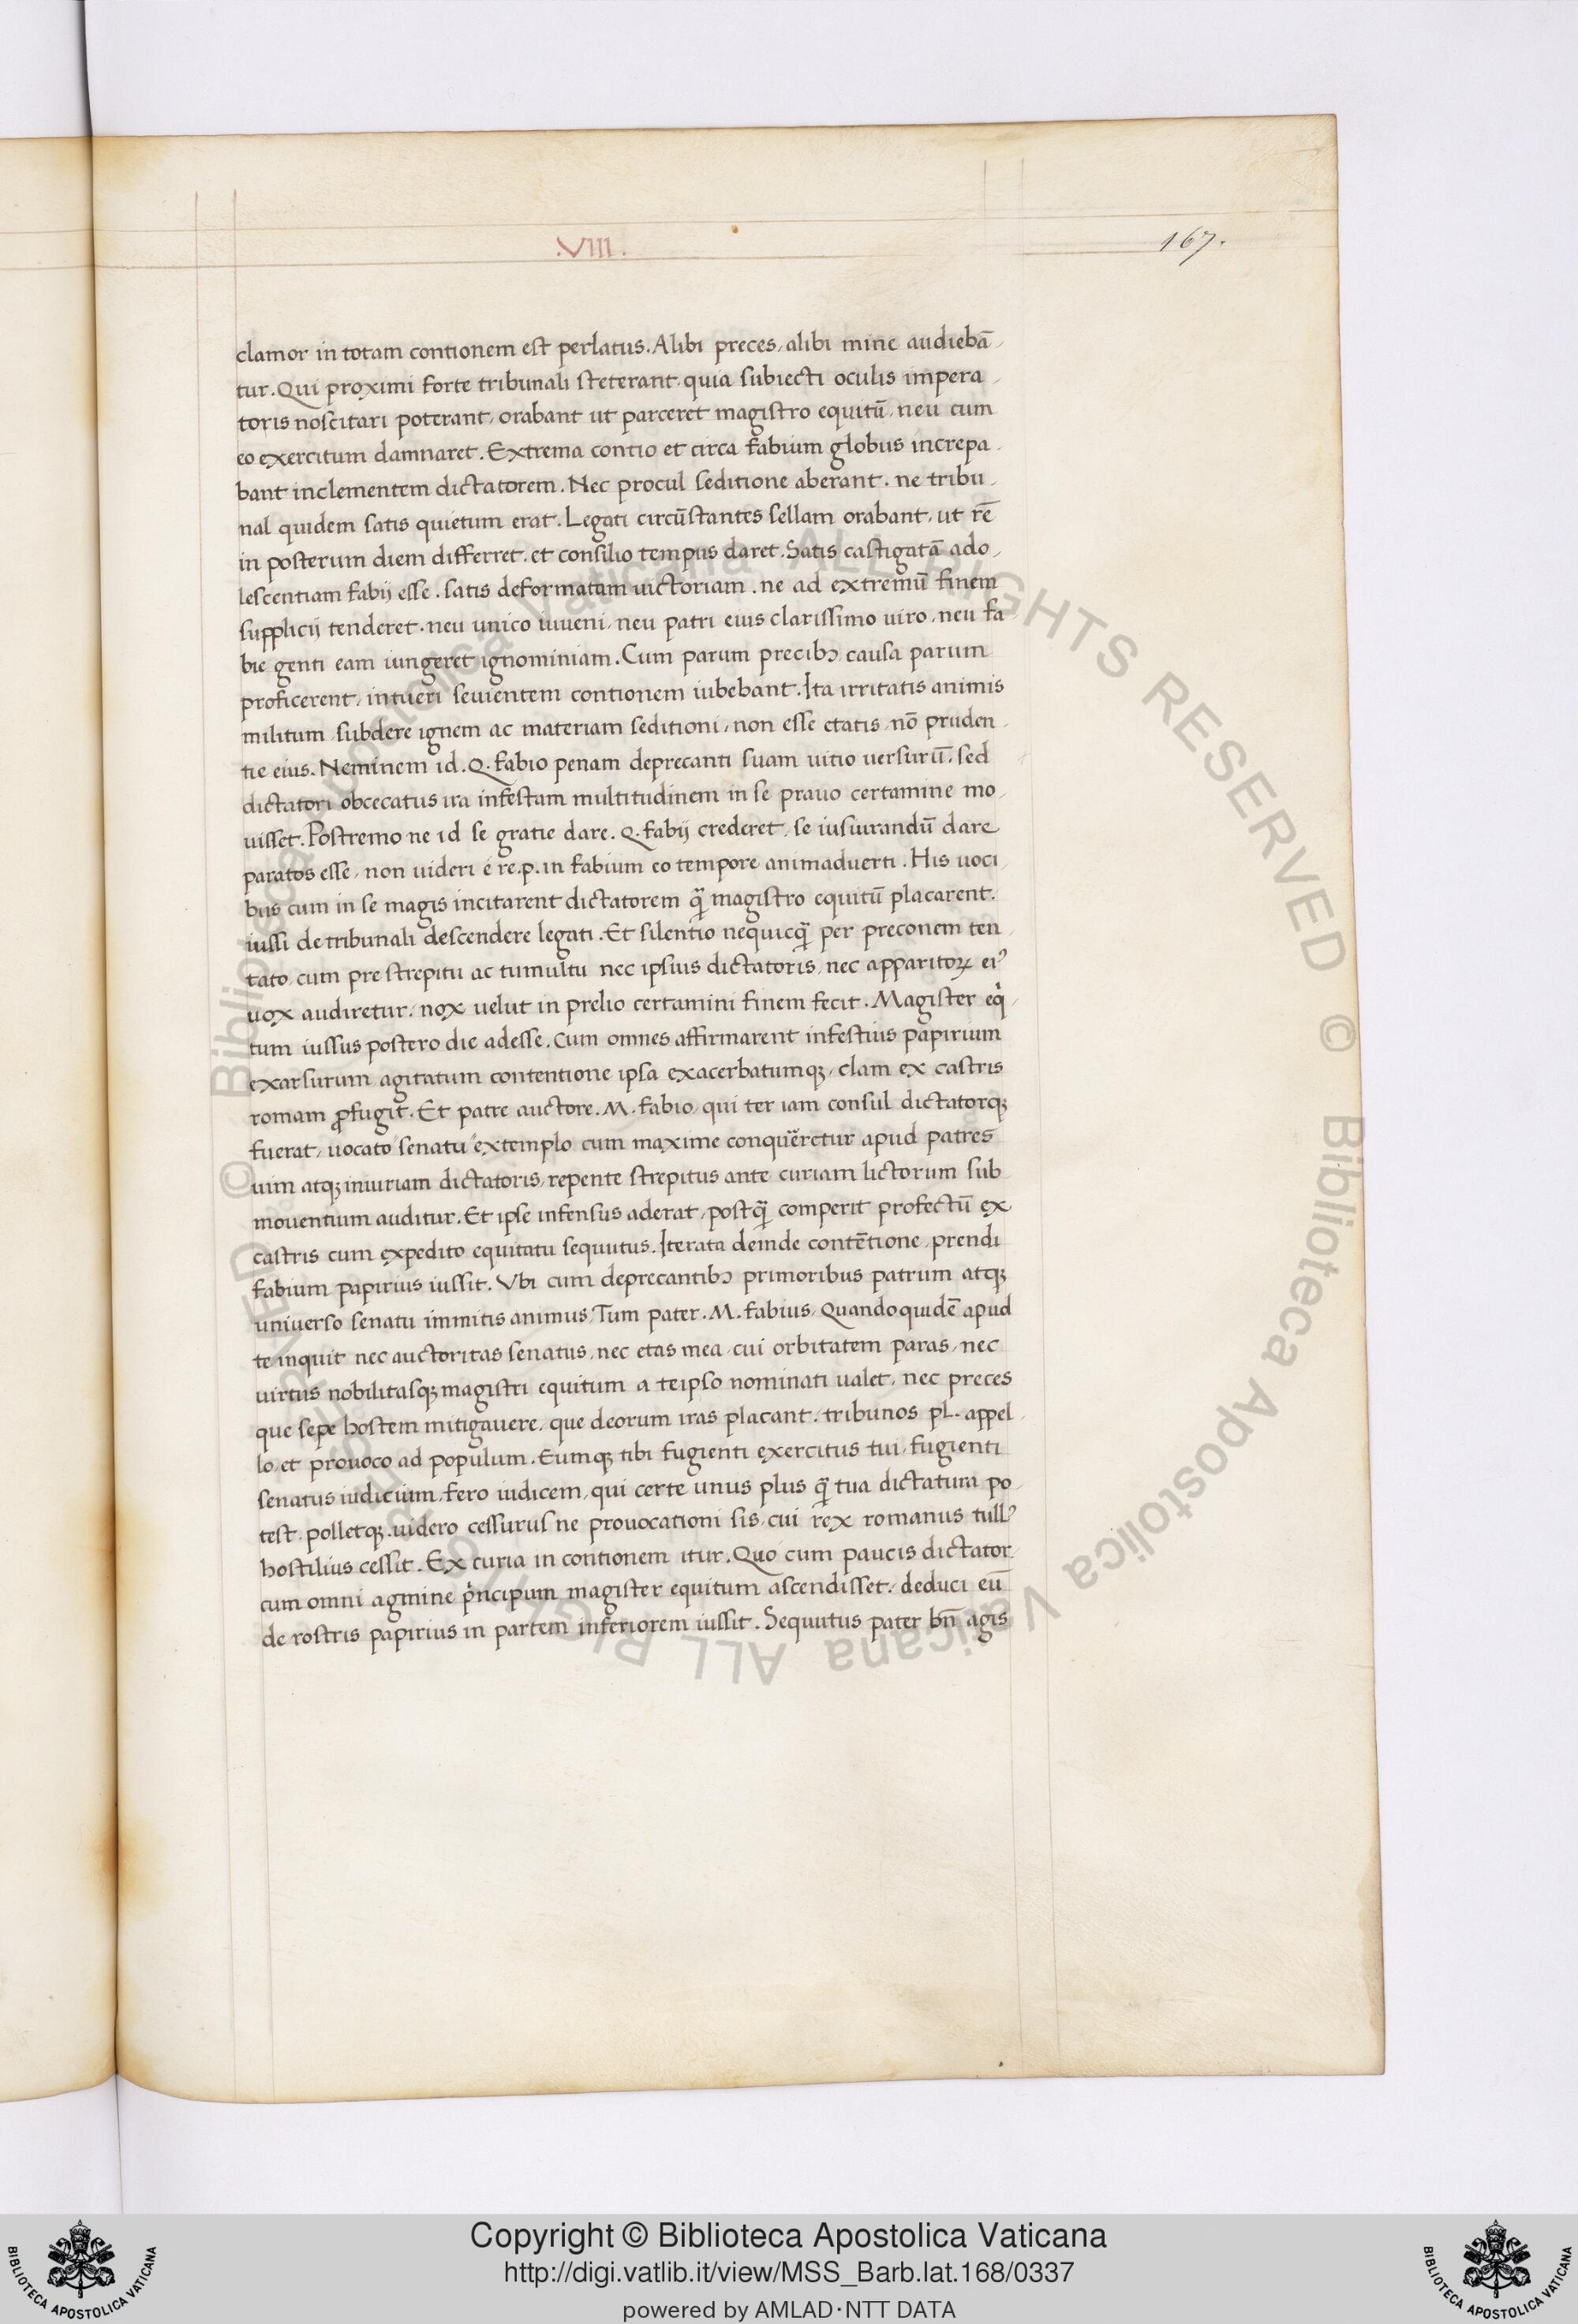 .VIII.
167.
clamor in totam contionem est perlatus. Alibi preces, alibi mine audiebā
tur. Qui proximi forte tribunali steterant, quia subiecti oculis impera
toris noscitari poterant, orabant ut parceret magistro equitū, neu cum
eo exercitum damnaret. Extrema contio et circa fabium globus increpa
bant inclementem dictatorem. Nec procul seditione aberant. ne tribu
nal quidem satis quietum erat. Legati circūstantes sellam orabant, ut rē
in posterum diem differret. et consilio tempus daret. Satis castigatā ado
lescentiam fabij esse. satis deformatam uictoriam. ne ad extremū finem
supplicij tenderet. neu unico iuueni, neu patri eius clarissimo uiro, neu fa
bie genti eam iungeret ignominiam. Cum parum precibꝫ causa parum
proficerent, intueri seuientem contionem iubebant. Ita irritatis animis
militum subdere ignem ac materiam seditioni, non esse etatis nō pruden
tie eius. Neminem id. Q. fabio penam deprecanti suam uitio uersurū. sed
dictatori obcecatus ira infestam multitudinem in se prauo certamine mo
uisset. Postremo ne id se gratie dare. Q. fabij crederet, se iusiurandū dare
paratos esse, non uideri é re.p. in fabium eo tempore animaduerti. His uoci
bus cum in se magis incitarent dictatorem q̄ magistro equitū placarent.
iussi de tribunali descendere legati. Et silentio nequicq̄ per preconem ten
tato, cum pre strepitu ac tumultu nec ipsius dictatoris, nec apparitoꝝ eiꝰ
uox audiretur, nox uelut in prelio certamini finem fecit. Magister eqi
tum iussus postero die adesse. Cum omnes affirmarent infestius papirium
exarsurum agitatum contentione ipsa exacerbatumqꝫ, clam ex castris
romam ꝓfugit. Et patre auctore. M. fabio, qui ter iam consul dictatorqꝫ
fuerat, uocato senatu extemplo cum maxime conqueretur apud patres
uim atqꝫ iniuriam dictatoris, repente strepitus ante curiam lictorum sub
mouentium auditur. Et ipse infensus aderat, postq̄ comperit profectū ex
castris cum expedito equitatu sequutus. Iterata deinde contētione prendi
fabium papirius iussit. Vbi cum deprecantibꝫ primoribus patrum atqꝫ
uniuerso senatu immitis animus, Tum pater. M. fabius, Quandoquidē apud
te inquit nec auctoritas senatus, nec etas mea, cui orbitatem paras, nec
uirtus nobilitasqꝫ magistri equitum a teipso nominati ualet, nec preces
que sepe hostem mitigauere, que deorum iras placant. tribunos pl. appel
lo, et prouoco ad populum. Eumqꝫ tibi fugienti exercitus tui, fugienti
senatus iudicium, fero iudicem, qui certe unus plus q̄ tua dictatura po
test. polletqꝫ. uidero cessurus ne prouocationi sis, cui rex romanus tullꝰ
hostilius cessit. Ex curia in contionem itur. Quo cum paucis dictator
cum omni agmine pincipum magister equitum ascendisset, deduci eū
de rostris papirius in partem inferiorem iussit. Sequutus pater bn̄ agis
© Biblioteca Apostolica Vaticana ALL RIGHTS RESERVED © Biblioteca Apostolica Vaticana ALL RIGHTS RESERVED
BIBLIOTECA APOSTOLICA VATICANA
Copyright © Biblioteca Apostolica Vaticana
http://digi.vatlib.it/view/MSS_Barb.lat.168/0337
powered by AMLAD·NTT DATA
BIBLIOTECA APOSTOLICA VATICANA